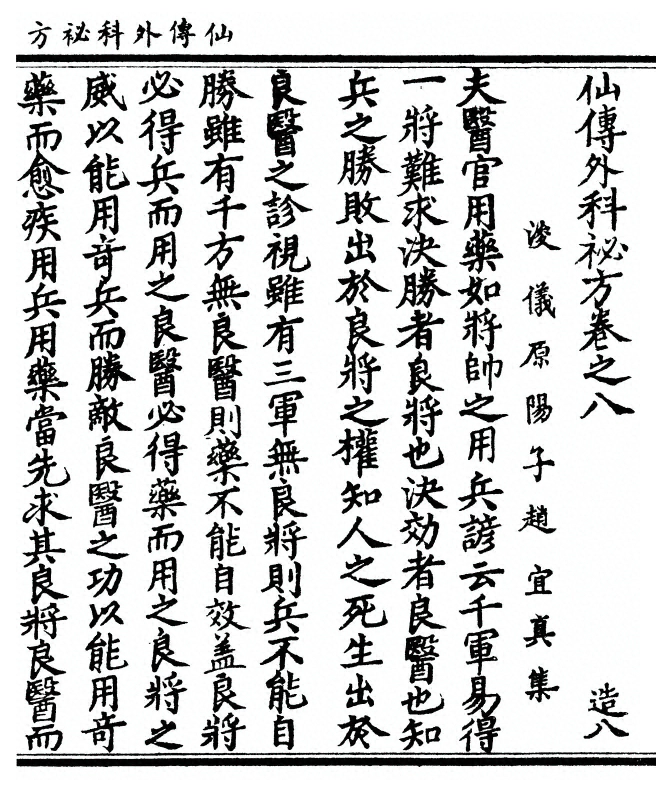 仙傳外科祕方
仙傳外科祕方卷之八 造八
浚儀原陽子趙宜真集
夫醫官用藥如將帥之用兵諺云千軍易得
一將難求決勝者良將也決効者良醫也知
兵之勝敗出於良將之權知人之死生出於
良醫之診視雖有三軍無良將則兵不能自
勝雖有千方無良醫則藥不能自效盖良將
必得兵而用之良醫必得藥而用之良將之
威以能用竒兵而勝敵良醫之功以能用竒
藥而愈疾用兵用藥當先求其良將良醫而